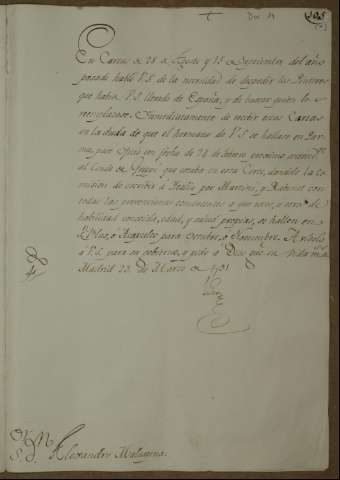 En Cartas de 28 de Agosto y 15 de Septiembre del año
pasado habló V.S. de la necesidad de despedir los Pintores
que havia V.S. llevado de España, y de buscar quien los
reemplazase. Inmediatamente de recibir estas Cartas
en la duda de que el hermano de V.S. se hallase en Par
ma, pasé Oficio con fecha de 28 de Febrero proximo
al Conde de que estaba en esta Corte, dandole la Co
mision de escribir a Italia por y con
todas las prevenciones convenientes a que uno, u otro de
habilidad conocida, edad, y salud propias, se hallen en
para Octubre, o Noviembre. Avisolo
a V.S. para su gobierno, y pido a Dios que su vida m.a.
Madrid 23 de Marzo de 1791
S.D. Alexandro Malaspina.